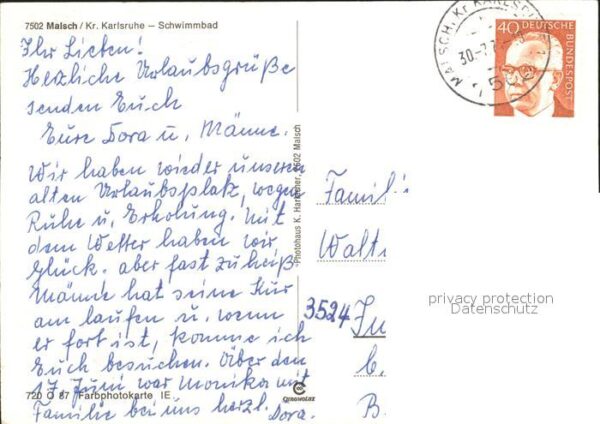 7502 Malsch / Kr. Karlsruhe – Schwimmbad
Ihr Lieben!
Herzliche Urlaubsgrüße
senden Euch
Eure Dora u. Männe.
Wir haben wieder unseren
alten Urlaubsplatz, wegen
Ruhe u. Erholung. Mit
dem Wetter haben wir
Glück. aber fast zu heiß
Männe hat seine Kur
am laufen u. wenn
er fort ist, komme ich
Euch besuchen. Über den
17. Juni war Monika mit
Familie bei uns herzl.
Dora.
720 O 87 Farbphotokarte IE
CEKUMCOLOR
Photohaus K. 7502 Malsch
MALSCH, Kr KARLSRUHE
30.-7.
7502
40
DEUTSCHE
BUNDESPOST
Famil
Walt
3524
b.
B.
privacy protection
Datenschutz